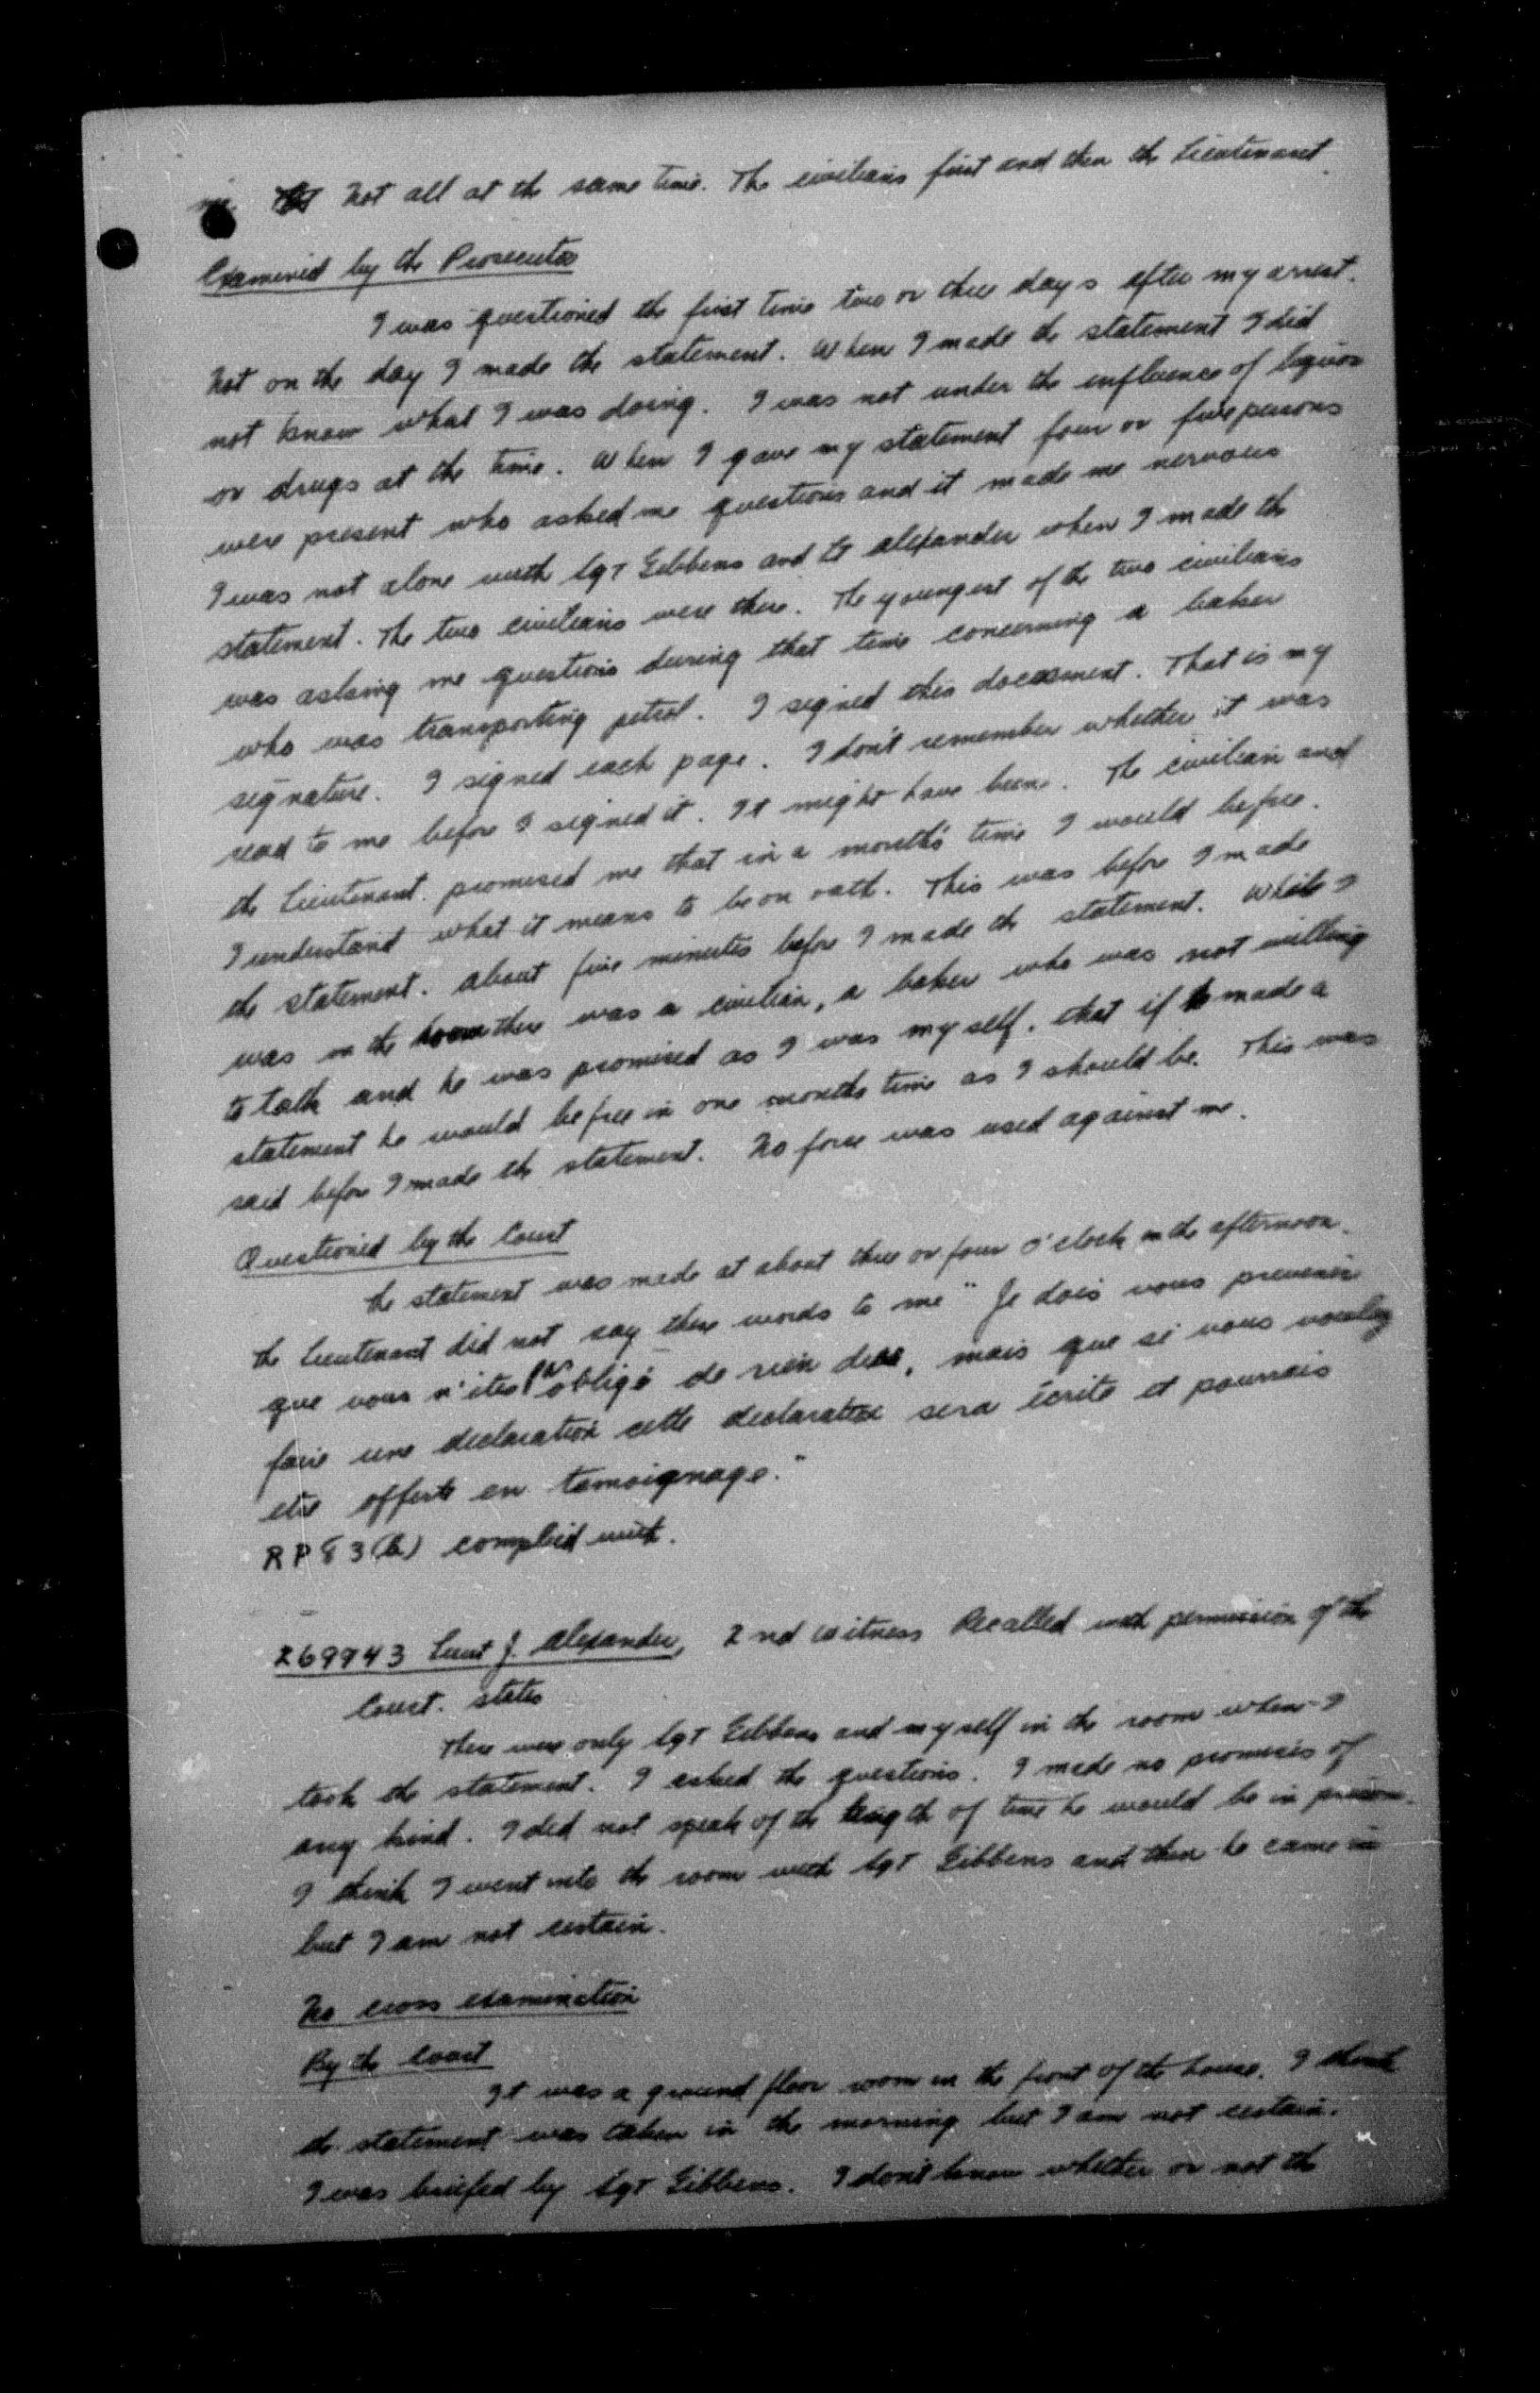 me. Not all at the same time. The civilians first and then the Lieutenant.
Examined by the Prosecutor
I was questioned the first time two or three days after my arrest.
Not on the day I made the statement. When I made the statement I did
not know what I was doing. I was not under the influence of liquor
or drugs at the time. When I gave my statement four or five persons
were present who asked me questions and it made me nervous
I was not alone with Sgt Gibbens and Lt Alexander when I made the
statement. The two civilians were there. The youngest of the two civilians
was asking me questions during that time concerning a baker
who was transporting petrol. I signed this document. That is my
signature. I signed each page. I don't remember whether it was
read to me before I signed it. It might have been. The civilian and
the Lieutenant promised me that in a month's time I would be free.
I understand what it means to be on oath. This was before I made
the statement. About five minutes before I made the statement. While I
was in the room there was a civilian, a baker who was not willing
to talk and he was promised as I was myself, that if he made a
statement he would be free in one months time as I should be. This was
said before I made the statement. No force was used against me.
Questioned by the Court
The statement was made at about three or four o'clock in the afternoon.
The Lieutenant did not say these words to me "Je dois vous prevenir
que vous n'etes pas obligé de rien dire, mais que si vous voulez
faire une declaration cette declaration sera écrite et pourrais
etre offerte en temoignage."
RP 83 (b) complied with.
269943 Lieut J. Alexander, 2nd witness Recalled with permission of the
Court. states
There were only Sgt Gibbens and myself in the room when I
took the statement. I asked the questions. I made no promises of
any kind. I did not speak of the length of time he would be in prison.
I think I went into the room with Sgt Gibbens and then he came in
but I am not certain.
No cross examination
By the Court
It was a ground floor room in the front of the house. I think
the statement was taken in the morning but I am not certain.
I was briefed by Sgt Gibbens. I don't know whether or not the